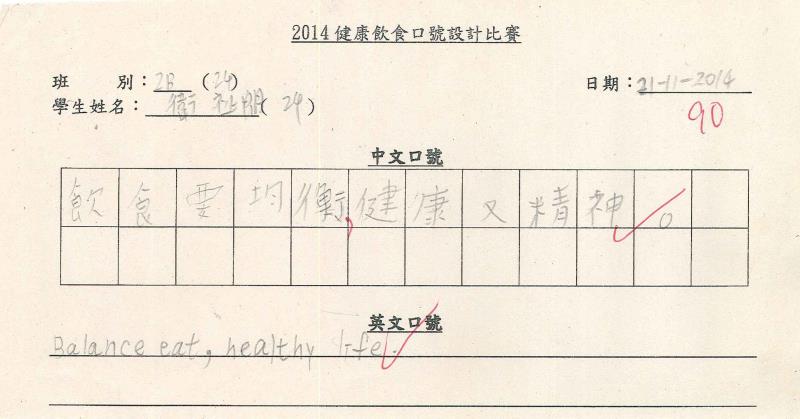 2014健康飲食口號設計比賽
班 別：2B (24) 日期：21-11-2014
學生姓名： (24)
90
中文口號
飲食要均衡,健康又精神。
英文口號
Balance eat, healthy life.